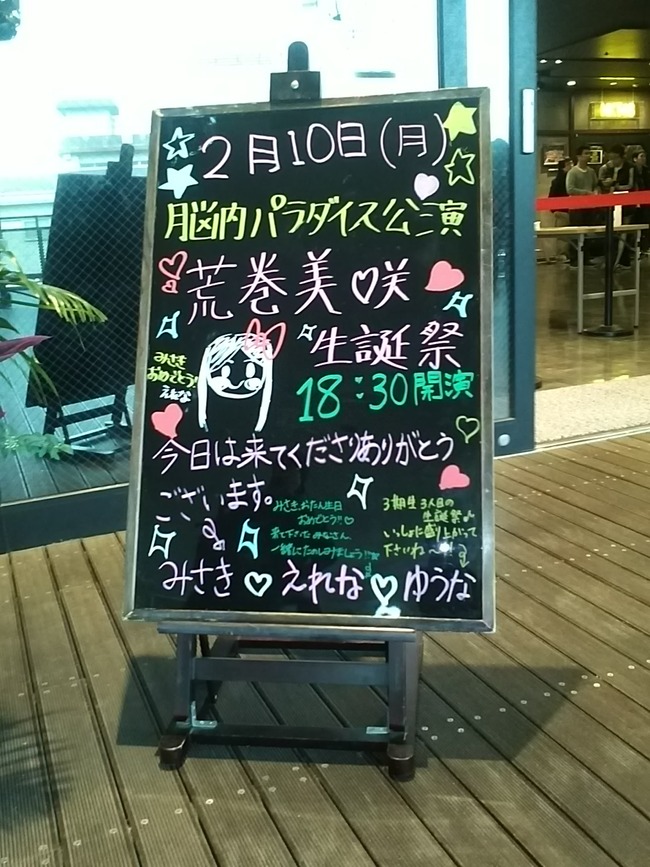 2月10日(月)
脳内パラダイス公演
荒巻美♡咲
生誕祭
みさき
おめでとう!
えれな
18:30開演
今日は来てくださりありがとう
ございます。
みさき、おたん生日
おめでとう!!♡
来て下さったみなさん、
一緒にたのしみましょう!!
3期生3人目の
生誕祭♪
いっしょに盛り上がって
下さいね〜!!
みさき♡えれな♡ゆうな